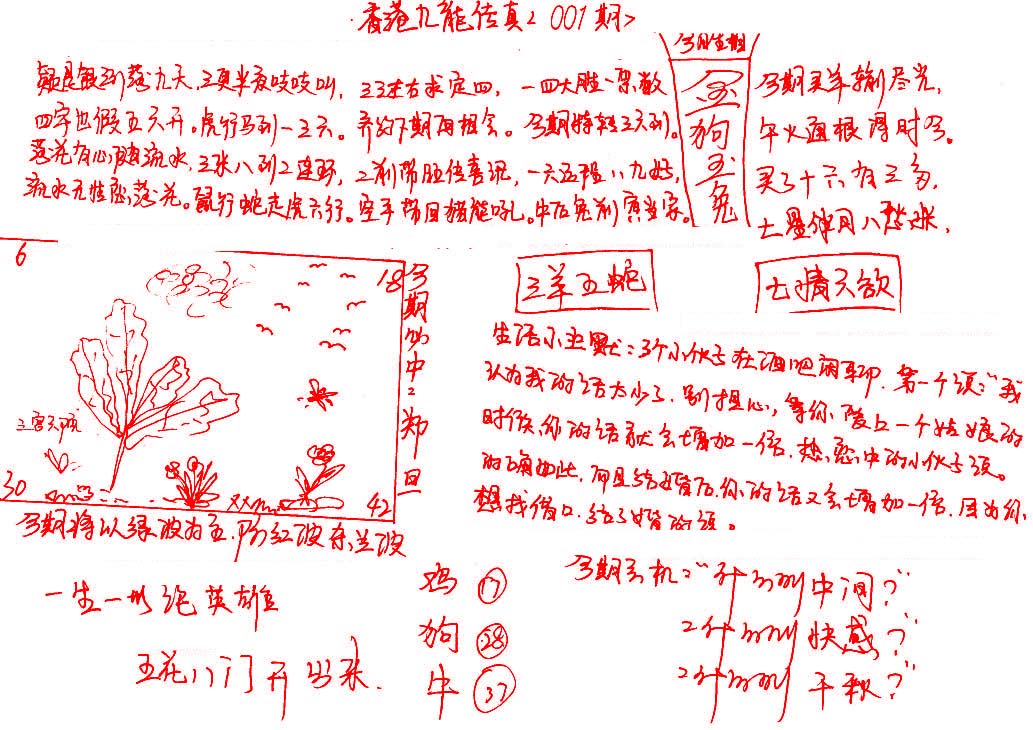 香港九能传真〈001期〉
疑是银河落九天,三更半夜吱吱叫,三三左右求定四,一四大胜一架数
四字也假五六开。虎行马到一三六。齐约下期再相会。今期特转三六到。
落花有心随流水,三来八到二连环,二前带胆传喜讯,一六五程八九好,
流水无情恋落花。鼠行蛇走虎六行。空手带回猪能吼。牛后兔前寅当家。
今期生相
金狗玉兔
今期买羊输尽光,
午火通根得时多。
买了十六有三多,
土星伴月八愁来,
6
18
30
42
今期必中:郑旦
今期将以绿波为主,防红波杀兰波
三羊五蛇
七情六欲
生活小幽默:3个小伙子在酒吧闲聊,第一个说:"我
认为我的话太少了,别担心,等你爱上一个姑娘的
时候,你的话就会增加一倍,热恋中的小伙子说。
的确如此,而且结婚后,你的话又会增加一倍,因为你
想找借口,结了婚的说。
一生一世绝英雄
五花八门开出来.
鸡 17
狗 28
牛 37
今期玄机:"什么叫中间?"
2什么叫快感?"
2什么叫千秋?"